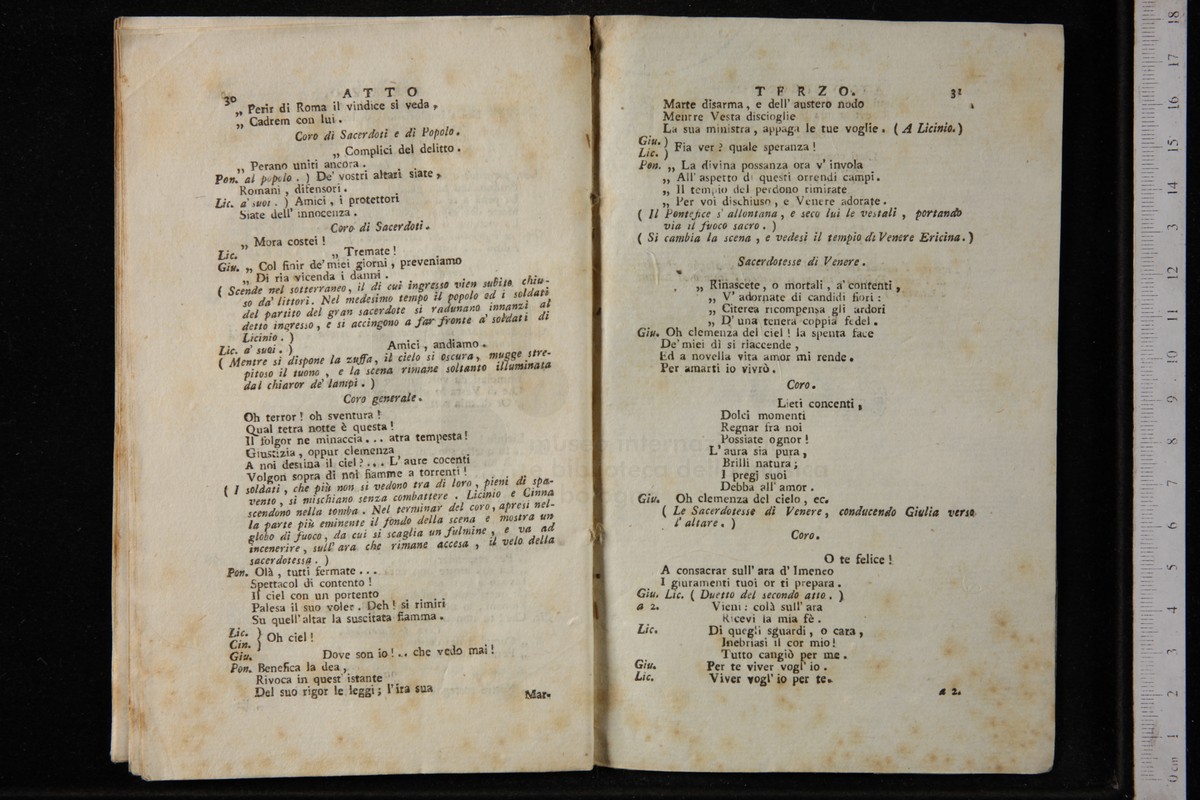 30
ATTO
„ Perir di Roma il vindice si veda,
„ Cadrem con lui.
Coro di Sacerdoti e di Popolo.
„ Complici del delitto.
„ Perano uniti ancora.
Pon. al popolo. ) De' vostri altari siate,
Romani, difensori.
Lic. a' suoi. ) Amici, i protettori
Siate dell' innocenza.
Coro di Sacerdoti.
„ Mora costei!
Lic. „ Tremate!
Giu. „ Col finir de' miei giorni, preveniamo
„ Di ria vicenda i danni.
( Scende nel sotterraneo, il di cui ingresso vien subito chiu-
so da' littori. Nel medesimo tempo il popolo ed i soldati
del partito del gran sacerdote si radunano innanzi al
detto ingresso, e si accingono a far fronte a' soldati di
Licinio. )
Lic. a' suoi. ) Amici, andiamo.
( Mentre si dispone la zuffa, il cielo si oscura, mugge stre-
pitoso il tuono, e la scena rimane soltanto illuminata
dal chiaror de' lampi. )
Coro generale.
Oh terror! oh sventura!
Qual tetra notte è questa!
Il folgor ne minaccia... atra tempesta!
Giustizia, oppur clemenza
A noi destina il ciel?... L' aure cocenti
Volgon sopra di noi fiamme a torrenti!
( I soldati, che più non si vedono tra di loro, pieni di spa-
vento, si mischiano senza combattere. Licinio e Cinna
scendono nella tomba. Nel terminar del coro, apresi nel-
la parte più eminente il fondo della scena e mostra un
globo di fuoco, da cui si scaglia un fulmine, e va ad
incenerire, sull' ara che rimane accesa, il velo della
sacerdotessa. )
Pon. Olà, tutti fermate...
Spettacol di contento!
Il ciel con un portento
Palesa il suo voler. Deh! si rimiri
Su quell' altar la suscitata fiamma.
Lic. }
Cin. } Oh ciel!
Giu. Dove son io!.. che vedo mai!
Pon. Benefica la dea,
Rivoca in quest' istante
Del suo rigor le leggi; l'ira sua
Mar-
TERZO.
31
Marte disarma, e dell' austero nodo
Mentre Vesta discioglie
La sua ministra, appaga le tue voglie. ( A Licinio. )
Giu. )
Lic. ) Fia ver? quale speranza!
Pon. „ La divina possanza ora v' invola
„ All' aspetto di questi orrendi campi.
„ Il tempio del perdono rimirate
„ Per voi dischiuso, e Venere adorate.
( Il Pontefice s' allontana, e seco lui le vestali, portando
via il fuoco sacro. )
( Si cambia la scena, e vedesi il tempio di Venere Ericina. )
Sacerdotesse di Venere.
„ Rinascete, o mortali, a' contenti,
„ V' adornate di candidi fiori:
„ Citerea ricompensa gli ardori
„ D' una tenera coppia fedel.
Giu. Oh clemenza del ciel! la spenta face
De' miei dì si riaccende,
Ed a novella vita amor mi rende.
Per amarti io vivrò.
Coro.
Lieti concenti,
Dolci momenti
Regnar fra noi
Possiate ognor!
L' aura sia pura,
Brilli natura;
I pregj suoi
Debba all' amor.
Giu. Oh clemenza del cielo, ec.
( Le Sacerdotesse di Venere, conducendo Giulia verso
l' altare. )
Coro.
O te felice!
A consacrar sull' ara d' Imeneo
I giuramenti tuoi or ti prepara.
Giu. Lic. ( Duetto del secondo atto. )
a 2. Vieni: colà sull' ara
Ricevi la mia fè.
Lic. Di quegli sguardi, o cara,
Inebriasi il cor mio!
Tutto cangiò per me.
Giu. Per te viver vogl' io.
Lic. Viver vogl' io per te.
a 2.